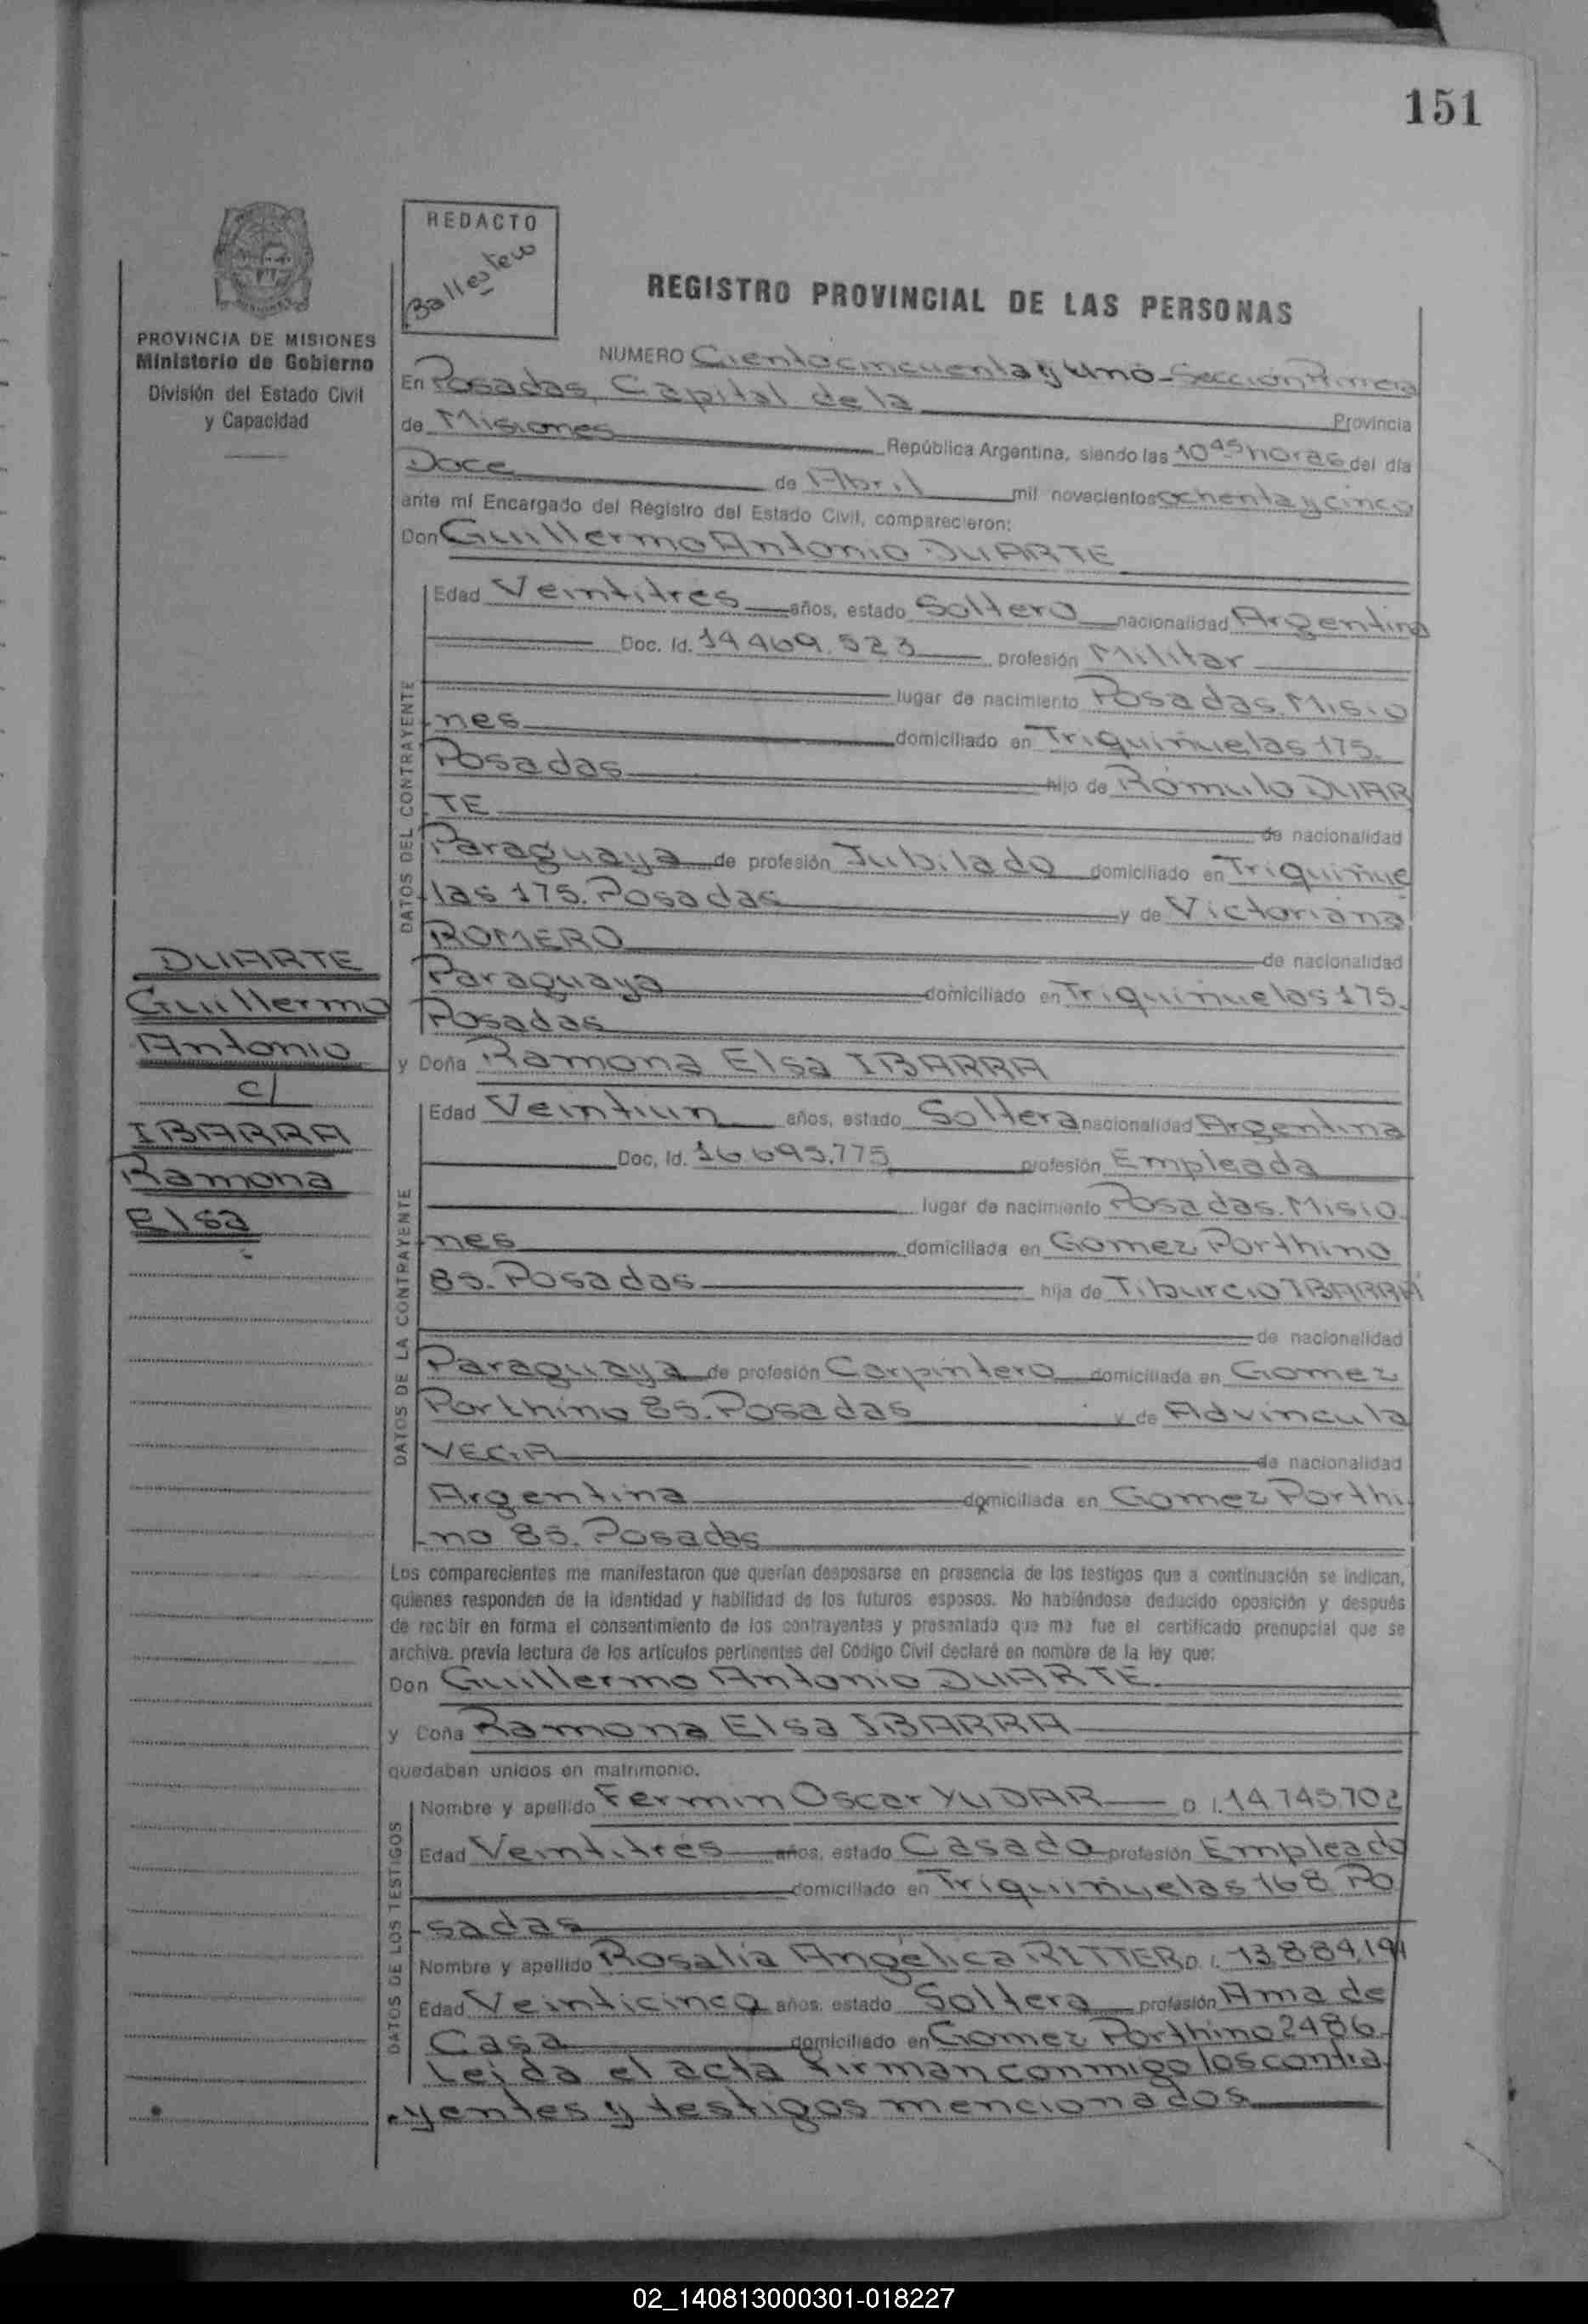 151
REDACTO
Ballestero
REGISTRO PROVINCIAL DE LAS PERSONAS
PROVINCIA DE MISIONES
Ministerio de Gobierno
División del Estado Civil
y Capacidad
NUMERO Cientocincuenta y Uno - Sección Primera
En Posadas, Capital de la Provincia
de Misiones República Argentina, siendo las 10 45 horas del día
Doce de Abril mil novecientos ochenta y cinco
ante mí Encargado del Registro del Estado Civil, comparecieron:
Don Guillermo Antonio DUARTE
Edad Veintitres años, estado Soltero nacionalidad Argentina
Doc. Id. 14.469.523 profesión Militar
lugar de nacimiento Posadas. Misio
nes domiciliado en Triquiñuelas 175.
Posadas hijo de Rómulo DUAR
TE de nacionalidad
Paraguaya de profesión Jubilado domiciliado en Triquiñue
las 175. Posadas y de Victoriana
ROMERO de nacionalidad
Paraguaya domiciliado en Triquiñuelas 175.
Posadas
DATOS DEL CONTRAYENTE
DUARTE
Guillermo
Antonio
c/
IBARRA
Ramona
Elsa
y Doña Ramona Elsa IBARRA
Edad Veintiun años, estado Soltera nacionalidad Argentina
Doc. Id. 16.695.775 profesión Empleada
lugar de nacimiento Posadas. Misio
nes domiciliada en Gomez Porthino
85. Posadas hija de Tiburcio IBARRA
de nacionalidad
Paraguaya de profesión Carpintero domiciliada en Gomez
Porthino 85. Posadas y de Advincula
VEGA de nacionalidad
Argentina domiciliada en Gomez Porthi
no 85. Posadas
DATOS DE LA CONTRAYENTE
Los comparecientes me manifestaron que querían desposarse en presencia de los testigos que a continuación se indican,
quienes responden de la identidad y habilidad de los futuros esposos. No habiéndose deducido oposición y después
de recibir en forma el consentimiento de los contrayentes y presentado que me fue el certificado prenupcial que se
archiva. previa lectura de los artículos pertinentes del Código Civil declaré en nombre de la ley que:
Don Guillermo Antonio DUARTE
y Doña Ramona Elsa IBARRA
quedaban unidos en matrimonio.
Nombre y apellido Fermin Oscar YUDAR D. I. 14.745.702
Edad Veintitrés años, estado Casado profesión Empleado
domiciliado en Triquiñuelas 168 Po
sadas
Nombre y apellido Rosalía Angélica RITTER D. I. 13.884.191
Edad Veinticinco años, estado Soltera profesión Ama de
Casa domiciliado en Gomez Porthino 2486.
DATOS DE LOS TESTIGOS
Leida el acta firman conmigo los contra
yentes y testigos mencionados
02_140813000301-018227